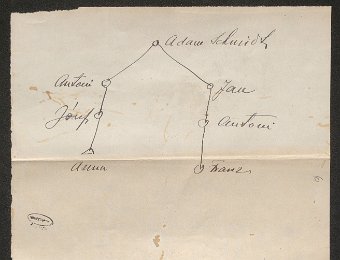 Adam Schmidt
Antoni
Jan
Józef
Antoni
Anna
Franz